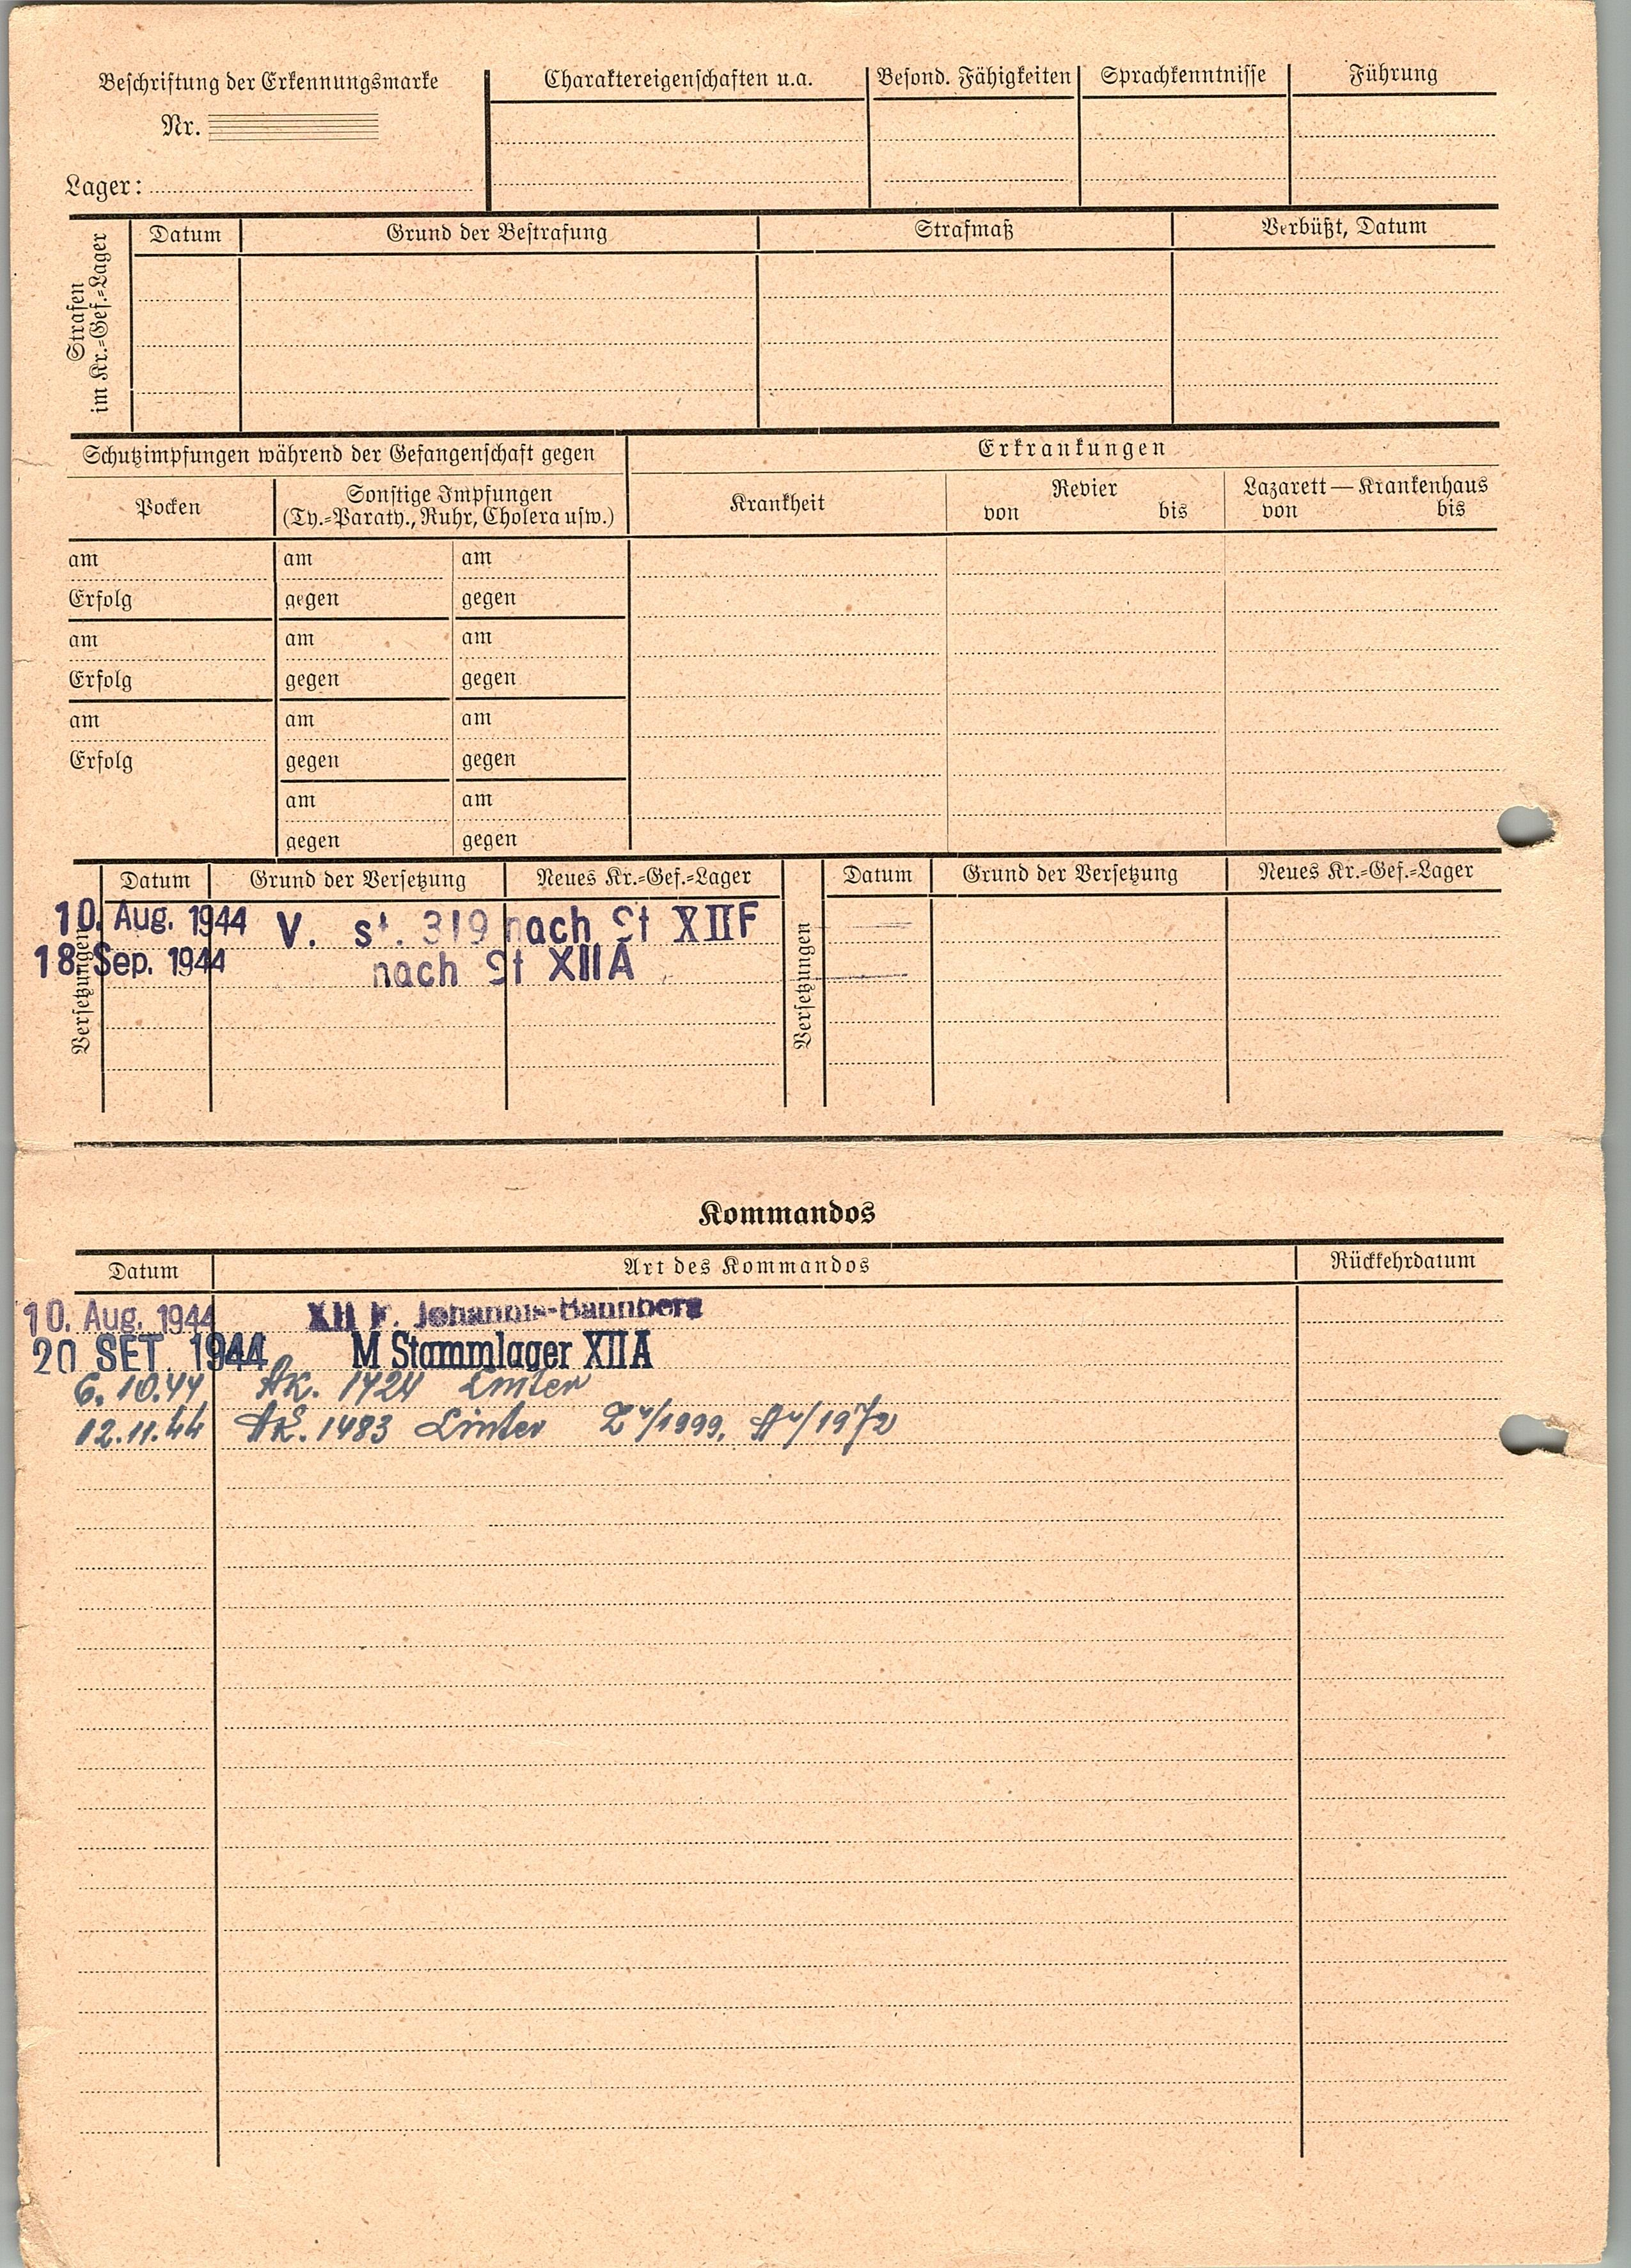 Beschriftung der Erkennungsmarke
Nr.
Lager:
Charaktereigenschaften u.a.
Besond. Fähigkeiten
Sprachkenntnisse
Führung
Strafen
im Kr.=Gef.=Lager
Datum
Grund der Bestrafung
Strafmaß
Verbüßt, Datum
Schutzimpfungen während der Gefangenschaft gegen
Erkrankungen
Pocken
Sonstige Impfungen
(Ty.=Paraty., Ruhr, Cholera usw.)
Krankheit
Revier
von bis
Lazarett—Krankenhaus
von bis
am am am
Erfolg gegen gegen
am am am
Erfolg gegen gegen
am am am
Erfolg gegen gegen
am am
gegen gegen
Versetzungen
Datum Grund der Versetzung Neues Kr.=Gef.=Lager
10. Aug. 1944 V. st. 319 nach St XIIF
18 Sep. 1944 nach St XIIA
Versetzungen
Datum Grund der Versetzung Neues Kr.=Gef.=Lager
Kommandos
Datum Art des Kommandos Rückkehrdatum
10. Aug. 1944 XII F. Johannis-Bannberg
20 SET. 1944 M Stammlager XIIA
6.10.44 AK. 1424
12.11.44 AK. 1483